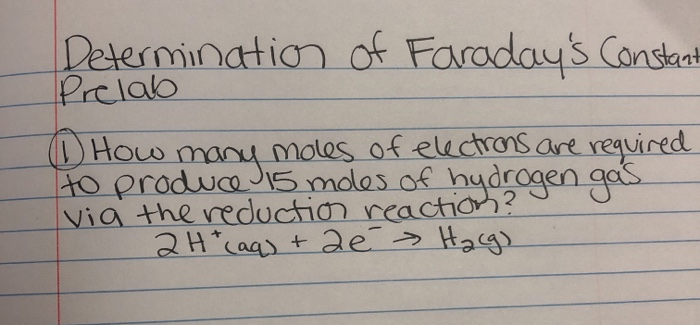 Determination of Faraday's Constant
Prelab
① How many moles of electrons are required
to produce 15 moles of hydrogen gas
via the reduction reaction?
2H⁺(aq) + 2e⁻ → H₂(g)